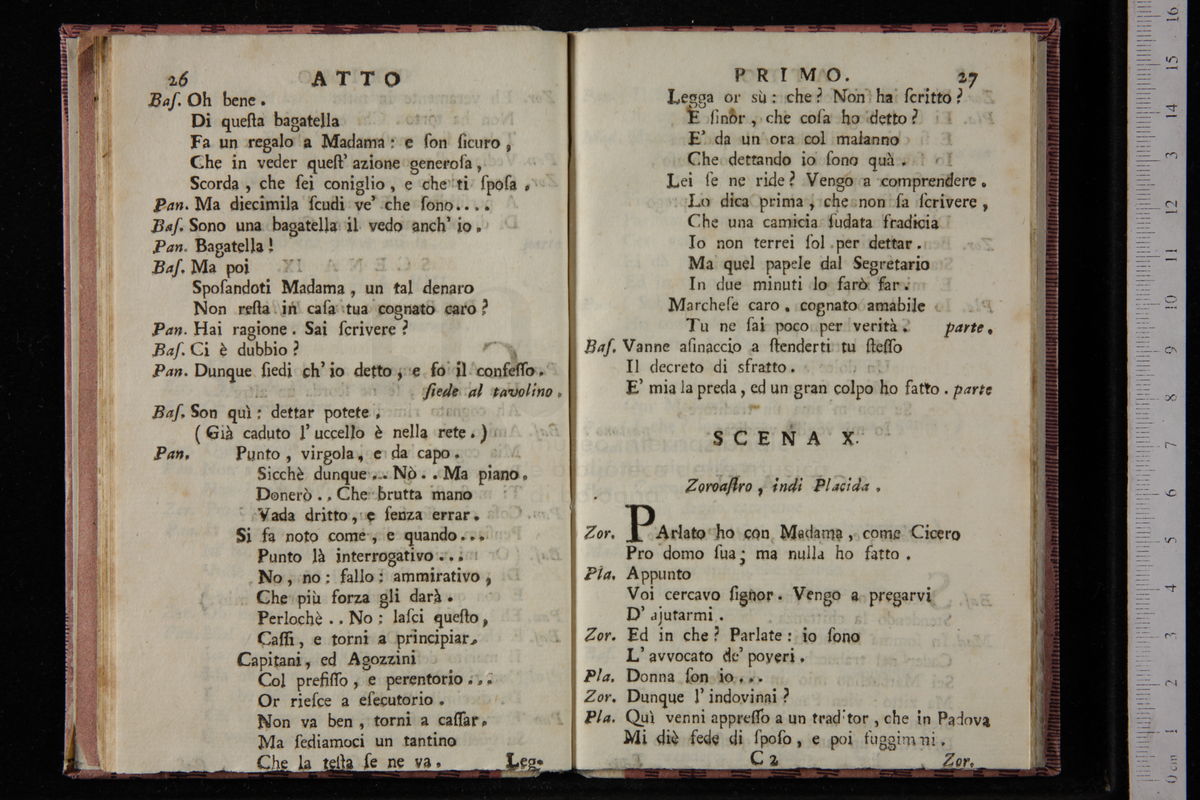 26 ATTO
Baſ. Oh bene.
Di queſta bagatella
Fa un regalo a Madama: e ſon ſicuro,
Che in veder queſt' azione generoſa,
Scorda, che ſei coniglio, e che ti ſpoſa.
Pan. Ma diecimila ſcudi ve' che ſono....
Baſ. Sono una bagatella il vedo anch' io.
Pan. Bagatella!
Baſ. Ma poi
Spoſandoti Madama, un tal denaro
Non reſta in caſa tua cognato caro?
Pan. Hai ragione. Sai ſcrivere?
Baſ. Ci è dubbio?
Pan. Dunque ſiedi ch' io detto, e fo il confeſſo.
ſiede al tavolino.
Baſ. Son quì: dettar potete.
(Già caduto l' uccello è nella rete.)
Pan. Punto, virgola, e da capo.
Sicchè dunque... Nò.. Ma piano.
Donerò.. Che brutta mano
Vada dritto, e ſenza errar.
Si fa noto come, e quando...
Punto là interrogativo...
No, no: fallo: ammirativo,
Che più forza gli darà.
Perlochè.. No: laſci queſto,
Caſſi, e torni a principiar.
Capitani, ed Agozzini
Col prefiſſo, e perentorio...
Or rieſce a eſecutorio.
Non va ben, torni a caſſar.
Ma ſediamoci un tantino
Che la teſta ſe ne va. Leg-
PRIMO. 27
Legga or sù: che? Non ha ſcritto?
E ſinor, che coſa ho detto?
E' da un ora col malanno
Che dettando io ſono quà.
Lei ſe ne ride? Vengo a comprendere.
Lo dica prima, che non ſa ſcrivere,
Che una camicia ſudata fradicia
Io non terrei ſol per dettar.
Ma quel papele dal Segretario
In due minuti lo farò far.
Marcheſe caro, cognato amabile
Tu ne ſai poco per verità. parte.
Baſ. Vanne aſinaccio a ſtenderti tu ſteſſo
Il decreto di sfratto.
E' mia la preda, ed un gran colpo ho fatto. parte
SCENA X.
Zoroaſtro, indi Placida.
Zor. PArlato ho con Madama, come Cicero
Pro domo ſua; ma nulla ho fatto.
Pla. Appunto
Voi cercavo ſignor. Vengo a pregarvi
D' ajutarmi.
Zor. Ed in che? Parlate: io ſono
L' avvocato de' poveri.
Pla. Donna ſon io...
Zor. Dunque l' indovinai?
Pla. Quì venni appreſſo a un traditor, che in Padova
Mi diè fede di ſpoſo, e poi fuggimmi.
C 2 Zor.